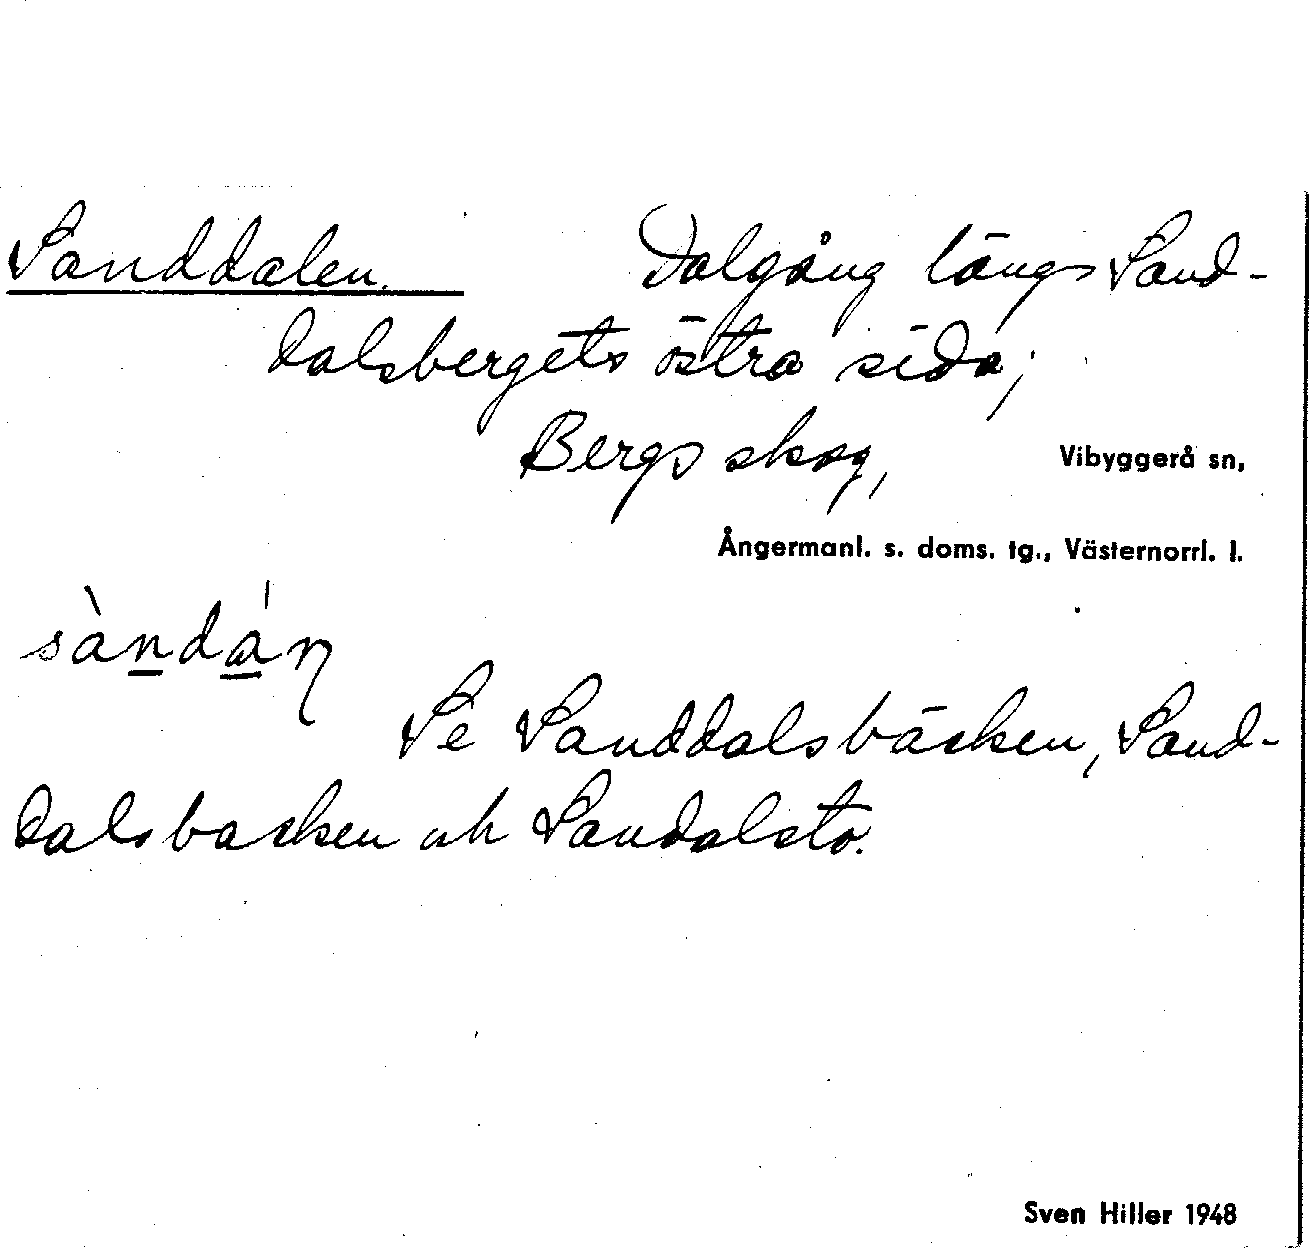 Sanddalen. Dalgång längs Sand-
dalsbergets östra sida;
Bergs skog, Vibyggerå sn,
Ångermanl. s. doms. tg., Västernorrl. l.
sàndáŋ
Se Sanddalsbäcken, Sand-
dalsbacken och
Sven Hiller 1948